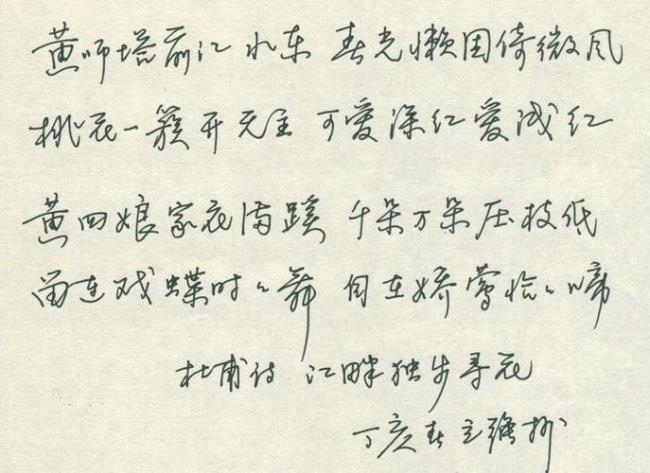 黄师塔前江水东 春光懒困倚微风
桃花一簇开无主 可爱深红爱浅红
黄四娘家花满蹊 千朵万朵压枝低
留连戏蝶时々舞 自在娇莺恰々啼
杜甫诗 江畔独步寻花
丁亥春 抄